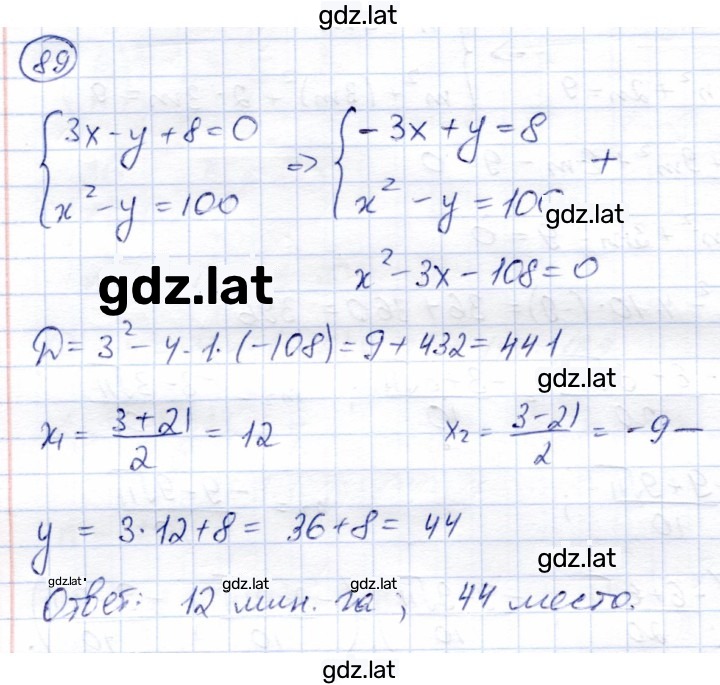 gdz.lat
89
{ 3x - y + 8 = 0 ⇒ { - 3x + y = 8
x² - y = 100 x² - y = 100 +
gdz.lat
x² - 3x - 108 = 0
gdz.lat
D = 3² - 4 · 1 · (-108) = 9 + 432 = 441
gdz.lat
x₁ = (3 + 21)/2 = 12 x₂ = (3 - 21)/2 = -9 —
y = 3 · 12 + 8 = 36 + 8 = 44
gdz.lat
gdz.lat gdz.lat gdz.lat
Ответ: 12 млн. га; 44 место.
gdz.lat